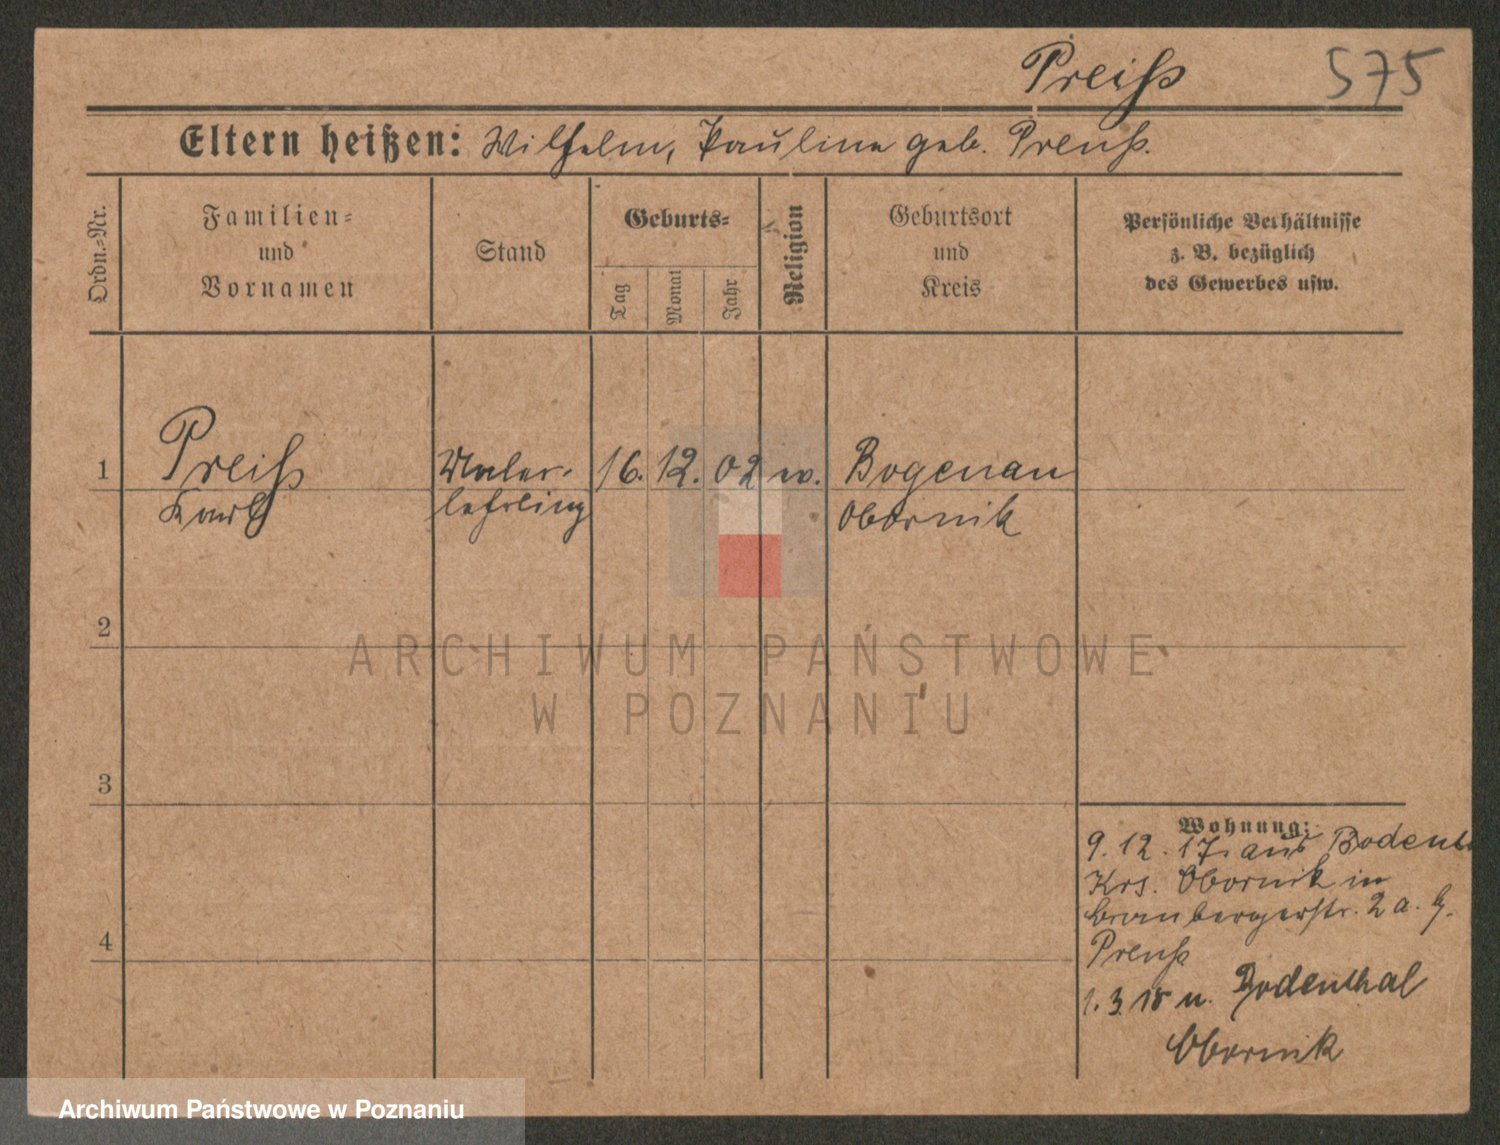 Preiß 575
Eltern heißen: Wilhelm, Pauline geb. Preuß.
Ordn.-Nr.
Familien-
und
Vornamen
Stand
Geburts-
Tag
Monat
Jahr
Religion
Geburtsort
und
Kreis
Persönliche Verhältnisse
z. B. bezüglich
des Gewerbes usw.
1 Preiß Maler- 16. 12. 02 ev. Bogenau
Karl lehrling Obornik
2
ARCHIWUM PAŃSTWOWE
W POZNANIU
3
Wohnung:
9. 12. 17. aus Bodent
Krs. Obornik in
2 a. b.
4
Preuß
1. 3. 18 n. Bodenthal
Obornik
Archiwum Państwowe w Poznaniu